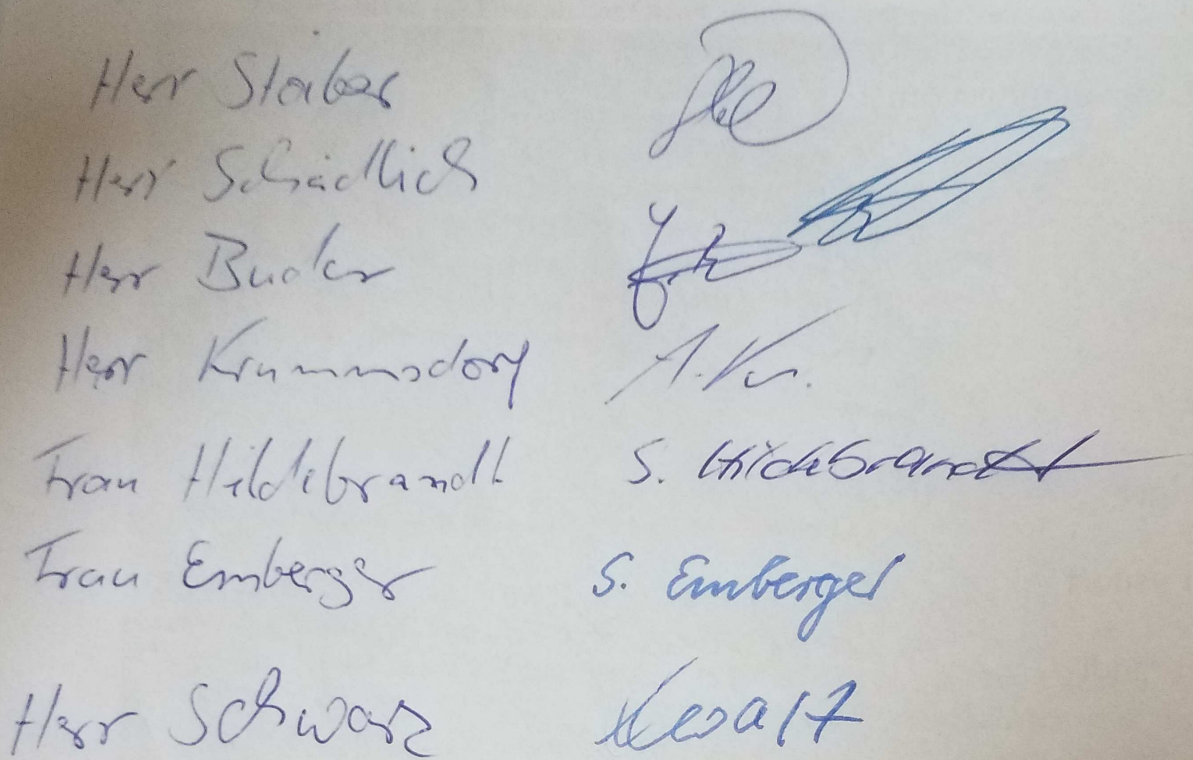 Herr Stäiber
Herr Schädlich
Herr Buder
Herr Krummsdorf A. Kr.
Frau Hildebrandt S. Hildebrandt
Frau Emberger S. Emberger
Herr Schwarz